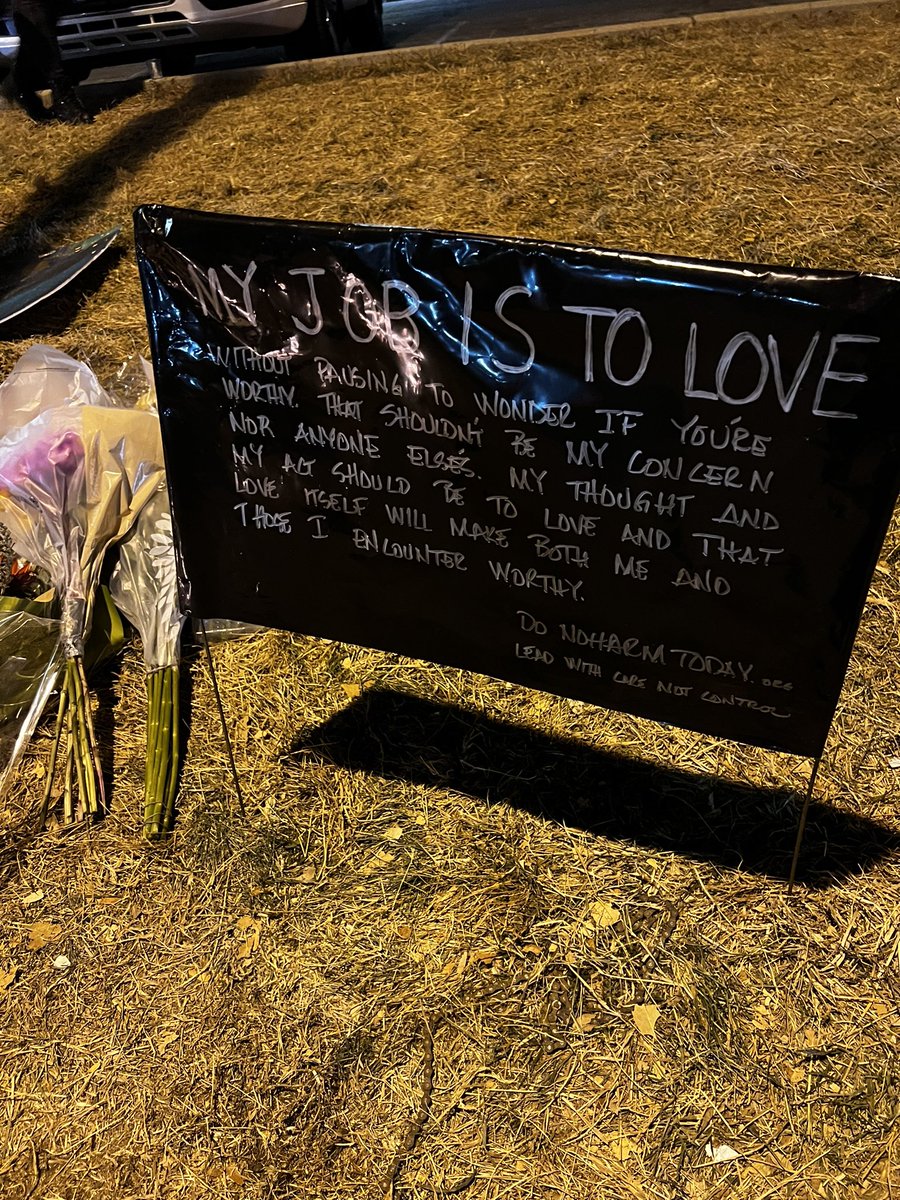 MY JOB IS TO LOVE
WITHOUT PAUSING TO WONDER IF YOU'RE
WORTHY. THAT SHOULDN'T BE MY CONCERN
NOR ANYONE ELSE'S. MY THOUGHT AND
MY ACT SHOULD BE TO LOVE AND THAT
LOVE ITSELF WILL MAKE BOTH ME AND
THOSE I ENCOUNTER WORTHY.
DO NOHARMTODAY.ORG
LEAD WITH CARE NOT CONTROL